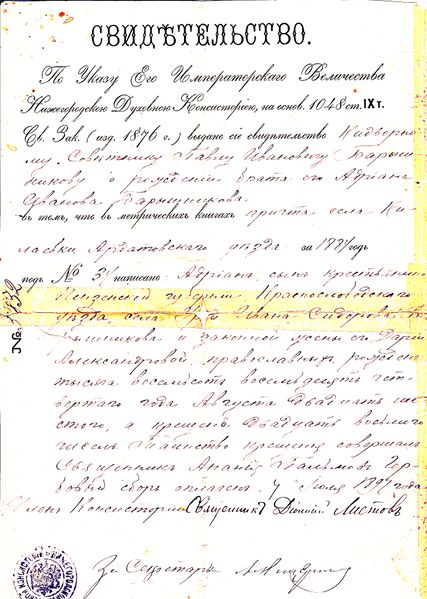 СВИДѢТЕЛЬСТВО.
По Указу Его Императорскаго Величества
Нижегородскою Духовною Консисторіею, на основ. 1048 ст. IX т.
Св. Зак. (изд. 1876 г.) выдано сіе свидѣтельство Надворно
му Совѣтнику Павлу Ивановичу Барыш
никову о рожденіи брата его Адріана
Иванова Барышникова.
въ томъ, что въ метрическихъ книгахъ причта села Ки
лаевки, Ардатовскаго уѣзда за 1884 годъ
подъ № 34 написано: Адріанъ, сынъ крестьянина
Пензенской губерніи Краснослободскаго
уѣзда, села Ивана Сидорова Ба
рышникова и законной жены его Даріи
Александровой, православныхъ, рожденъ
тысяча восемьсотъ восемьдесятъ чет
вертаго года Августа двадцать ше
стого, а крещенъ двадцать восьмого
чиселъ. Таинство крещенія совершалъ
Священникъ Ананій Пальмовъ. Гер
бовый сборъ оплаченъ. Іюля 1897 года
Членъ Консисторіи Священникъ Листовъ
За Секретаря
№ 5432